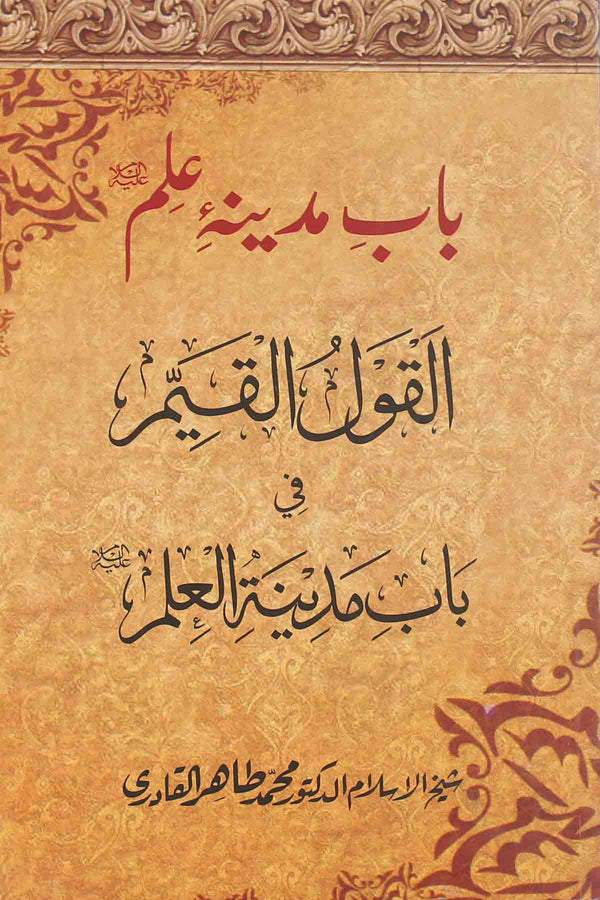 بابِ مدینۂ علم علیہ السلام
اَلْقَوْلُ الْقَيِّم
فِي
بَابِ مَدِيْنَةِ الْعِلْم علیہ السلام
شیخ الاسلام الدکتور محمد طاہر القادری